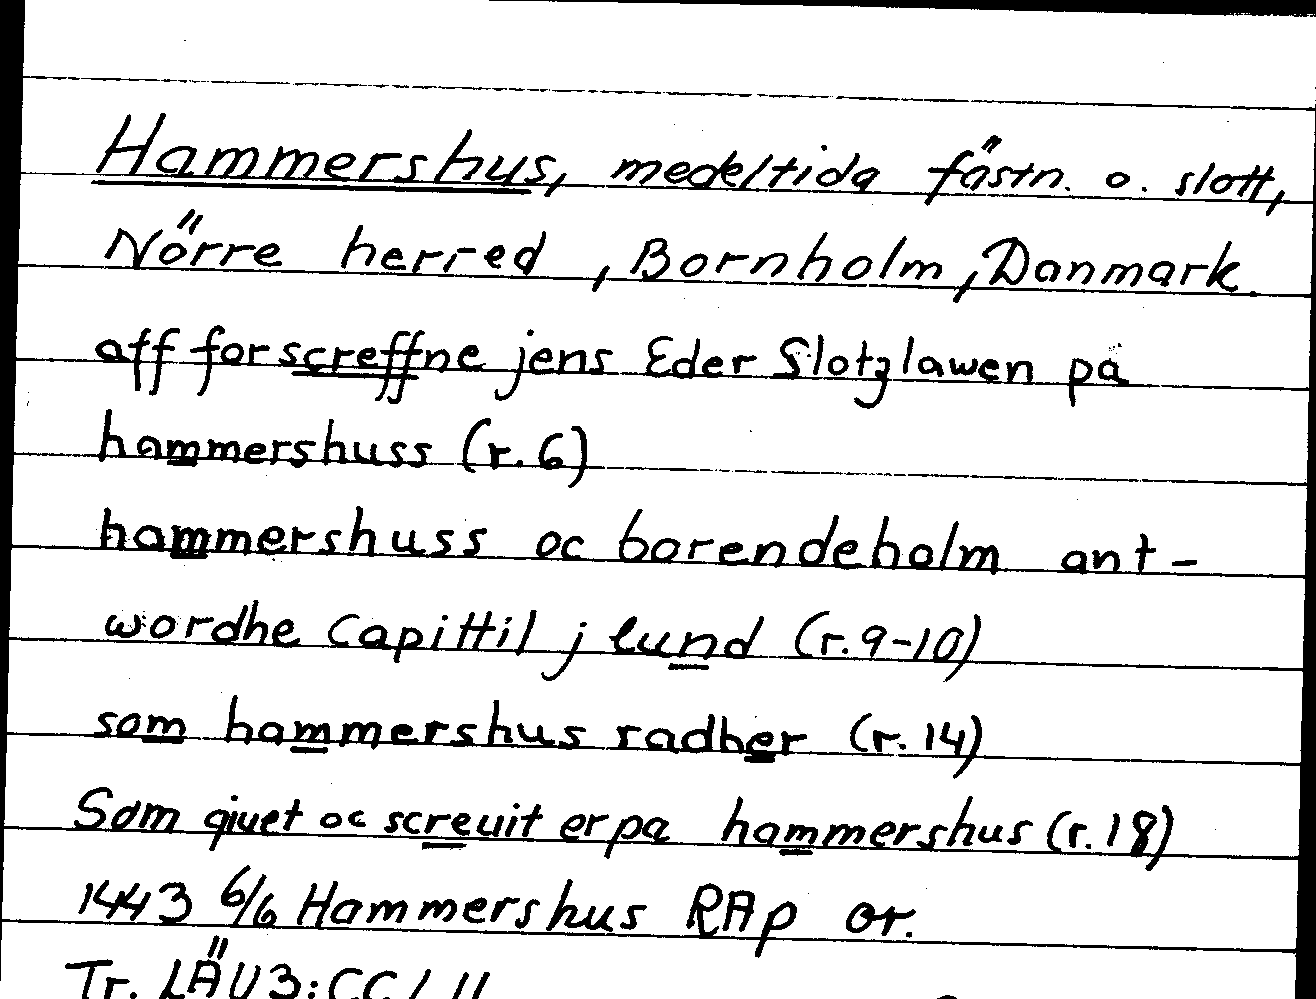 Hammershus, medeltida fästn. o. slott,
Nörre herred, Bornholm, Danmark.
aff forscreffne jens Eder Slotzlawen pa
hammershuss (r. 6)
hammershuss oc borendeholm ant-
wordhe Capittil j lund (r. 9-10)
som hammershus radher (r. 14)
Som giuet oc screuit er pa hammershus (r. 18)
1443 6/6 Hammershus RAp or.
Tr. LÄU 3: